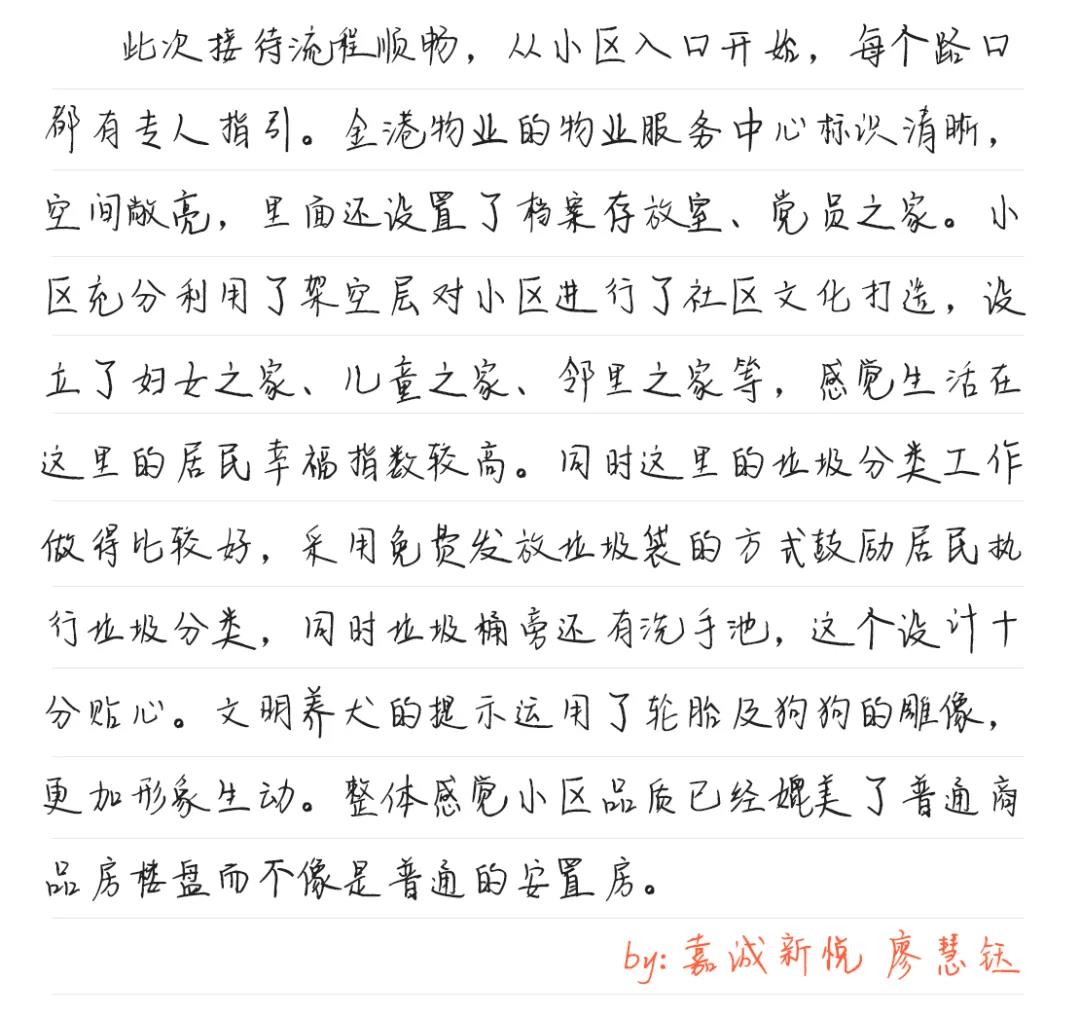 此次接待流程顺畅，从小区入口开始，每个路口
都有专人指引。金港物业的物业服务中心标识清晰，
空间敞亮，里面还设置了档案存放室、党员之家。小
区充分利用了架空层对小区进行了社区文化打造，设
立了妇女之家、儿童之家、邻里之家等，感觉生活在
这里的居民幸福指数较高。同时这里的垃圾分类工作
做得比较好，采用免费发放垃圾袋的方式鼓励居民执
行垃圾分类，同时垃圾桶旁还有洗手池，这个设计十
分贴心。文明养犬的提示运用了轮胎及狗狗的雕像，
更加形象生动。整体感觉小区品质已经媲美了普通商
品房楼盘而不像是普通的安置房。
by: 嘉诚新悦 廖慧钰